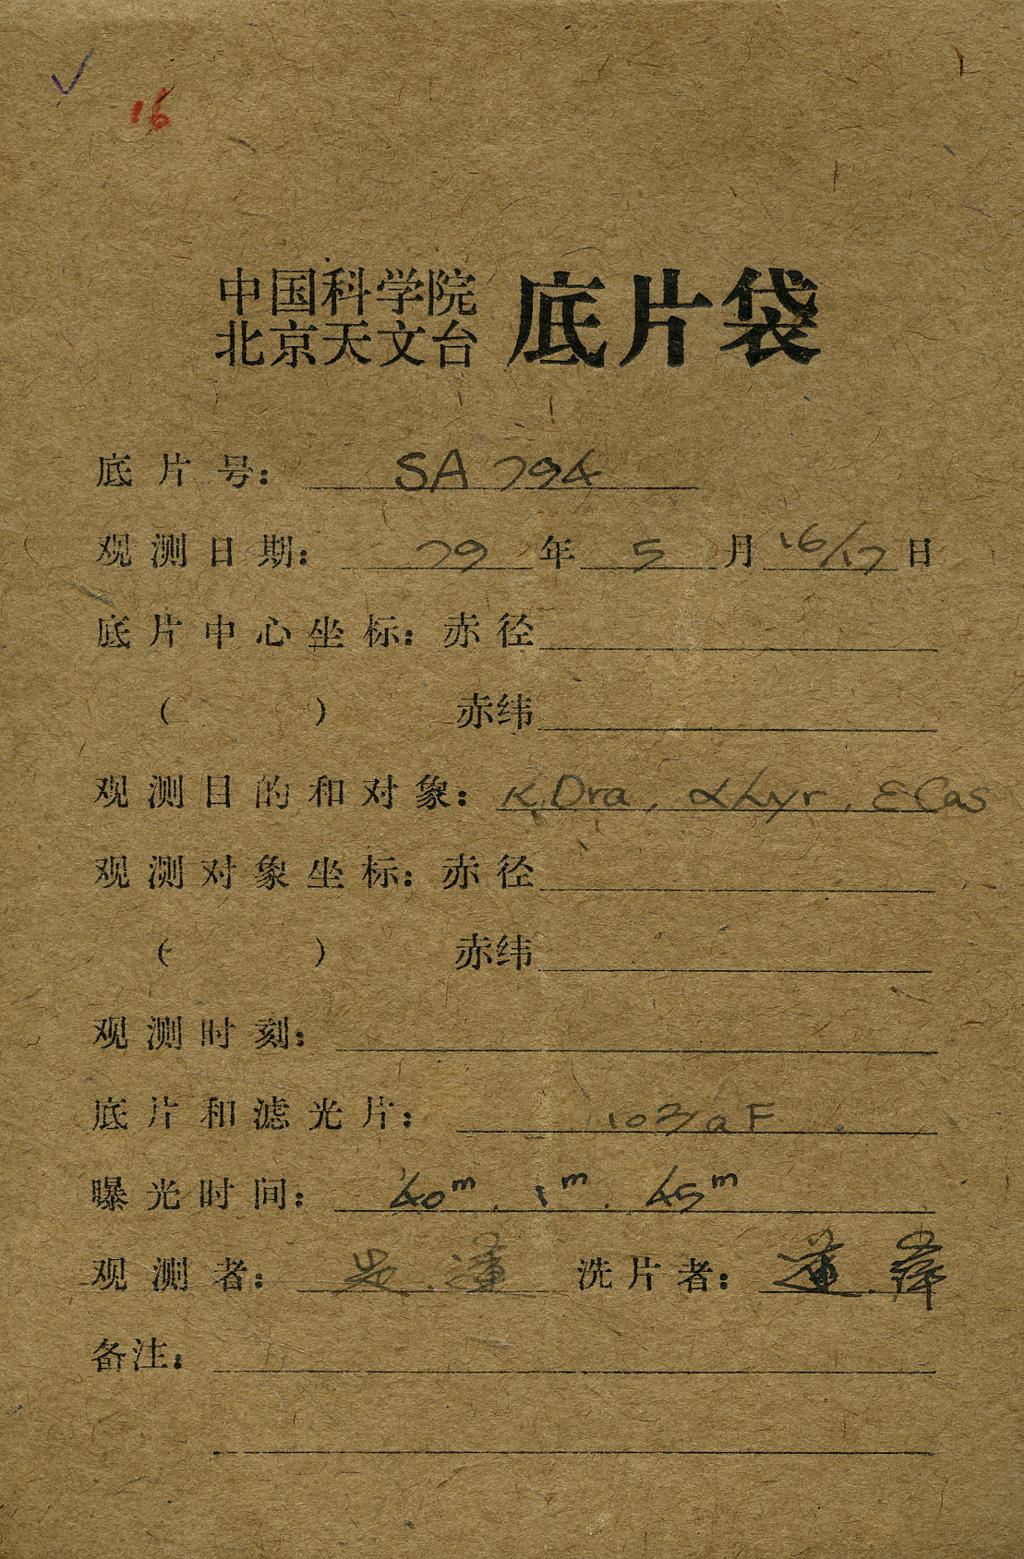 16
中国科学院
北京天文台 底片袋
底片号: SA 794
观测日期: 79 年 5 月 16/17 日
底片中心坐标: 赤径
( ) 赤纬
观测目的和对象: κ Dra, α Lyr, ε Cas
观测对象坐标: 赤径
( ) 赤纬
观测时刻:
底片和滤光片: 103aF
曝光时间: 40m, 1m, 45m
观测者: 洗片者:
备注: